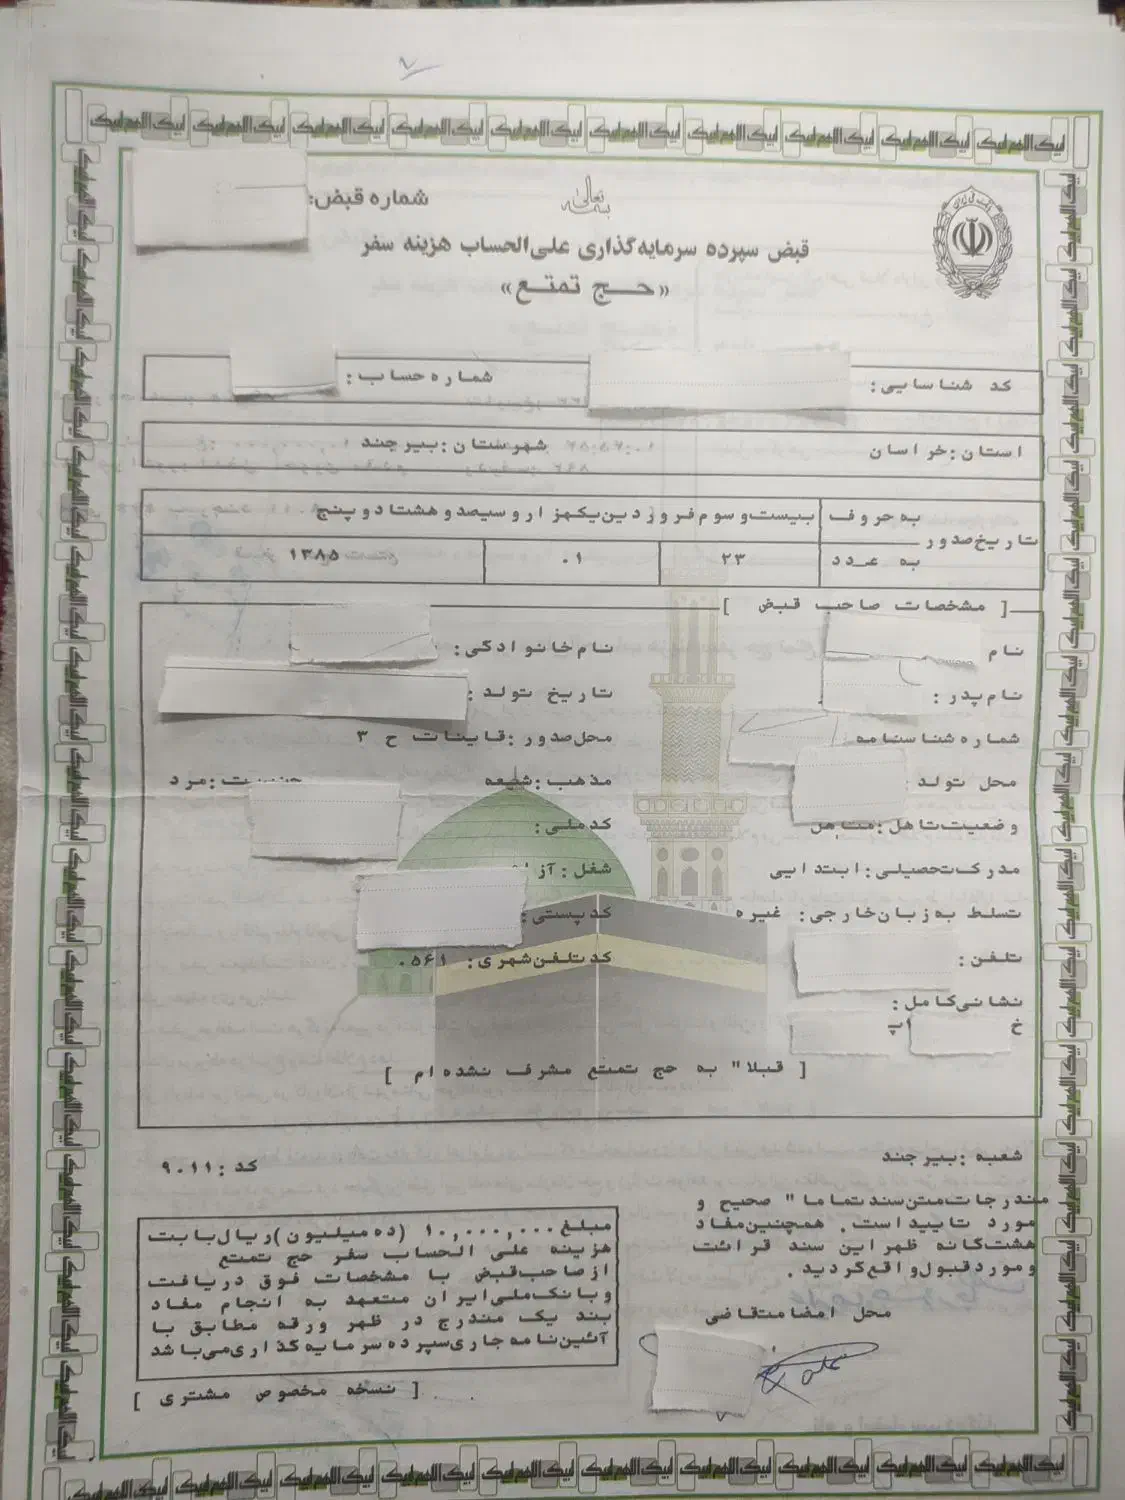 لبیک اللهم لبیک
بسمه تعالی
شماره قبض:
قبض سپرده سرمایه‌گذاری علی‌الحساب هزینه سفر
«حج تمتع»
کد شناسایی: شماره حساب:
استان: خراسان شهرستان: بیرجند
تاریخ صدور به حروف بیست و سوم فروردین یکهزار و سیصد و هشتاد و پنج
به عدد ۲۳ ۰۱ ۱۳۸۵
[ مشخصات صاحب قبض ]
نام نام خانوادگی:
نام پدر: تاریخ تولد:
شماره شناسنامه محل صدور: قاینات ح ۳
محل تولد: مذهب: شیعه جنسیت: مرد
وضعیت تاهل: متاهل کد ملی:
مدرک تحصیلی: ابتدایی شغل: آزا
تسلط به زبان خارجی: غیره کد پستی:
تلفن: کد تلفن شهری: ۰۵۶۱
نشانی کامل:
خ اپ
[ قبلا" به حج تمتع مشرف نشده ام ]
شعبه: بیرجند کد: ۹۰۱۱
مندرجات متن سند تماما" صحیح و
مورد تایید است. همچنین مفاد
هشت گانه ظهر این سند قرائت
و مورد قبول واقع گردید.
محل امضا متقاضی
مبلغ ۱۰,۰۰۰,۰۰۰ (ده میلیون) ریال بابت
هزینه علی الحساب سفر حج تمتع
از صاحب قبض با مشخصات فوق دریافت
و بانک ملی ایران متعهد به انجام مفاد
بند یک مندرج در ظهر ورقه مطابق با
آئین نامه جاری سپرده سرمایه گذاری می باشد
[ نسخه مخصوص مشتری ]